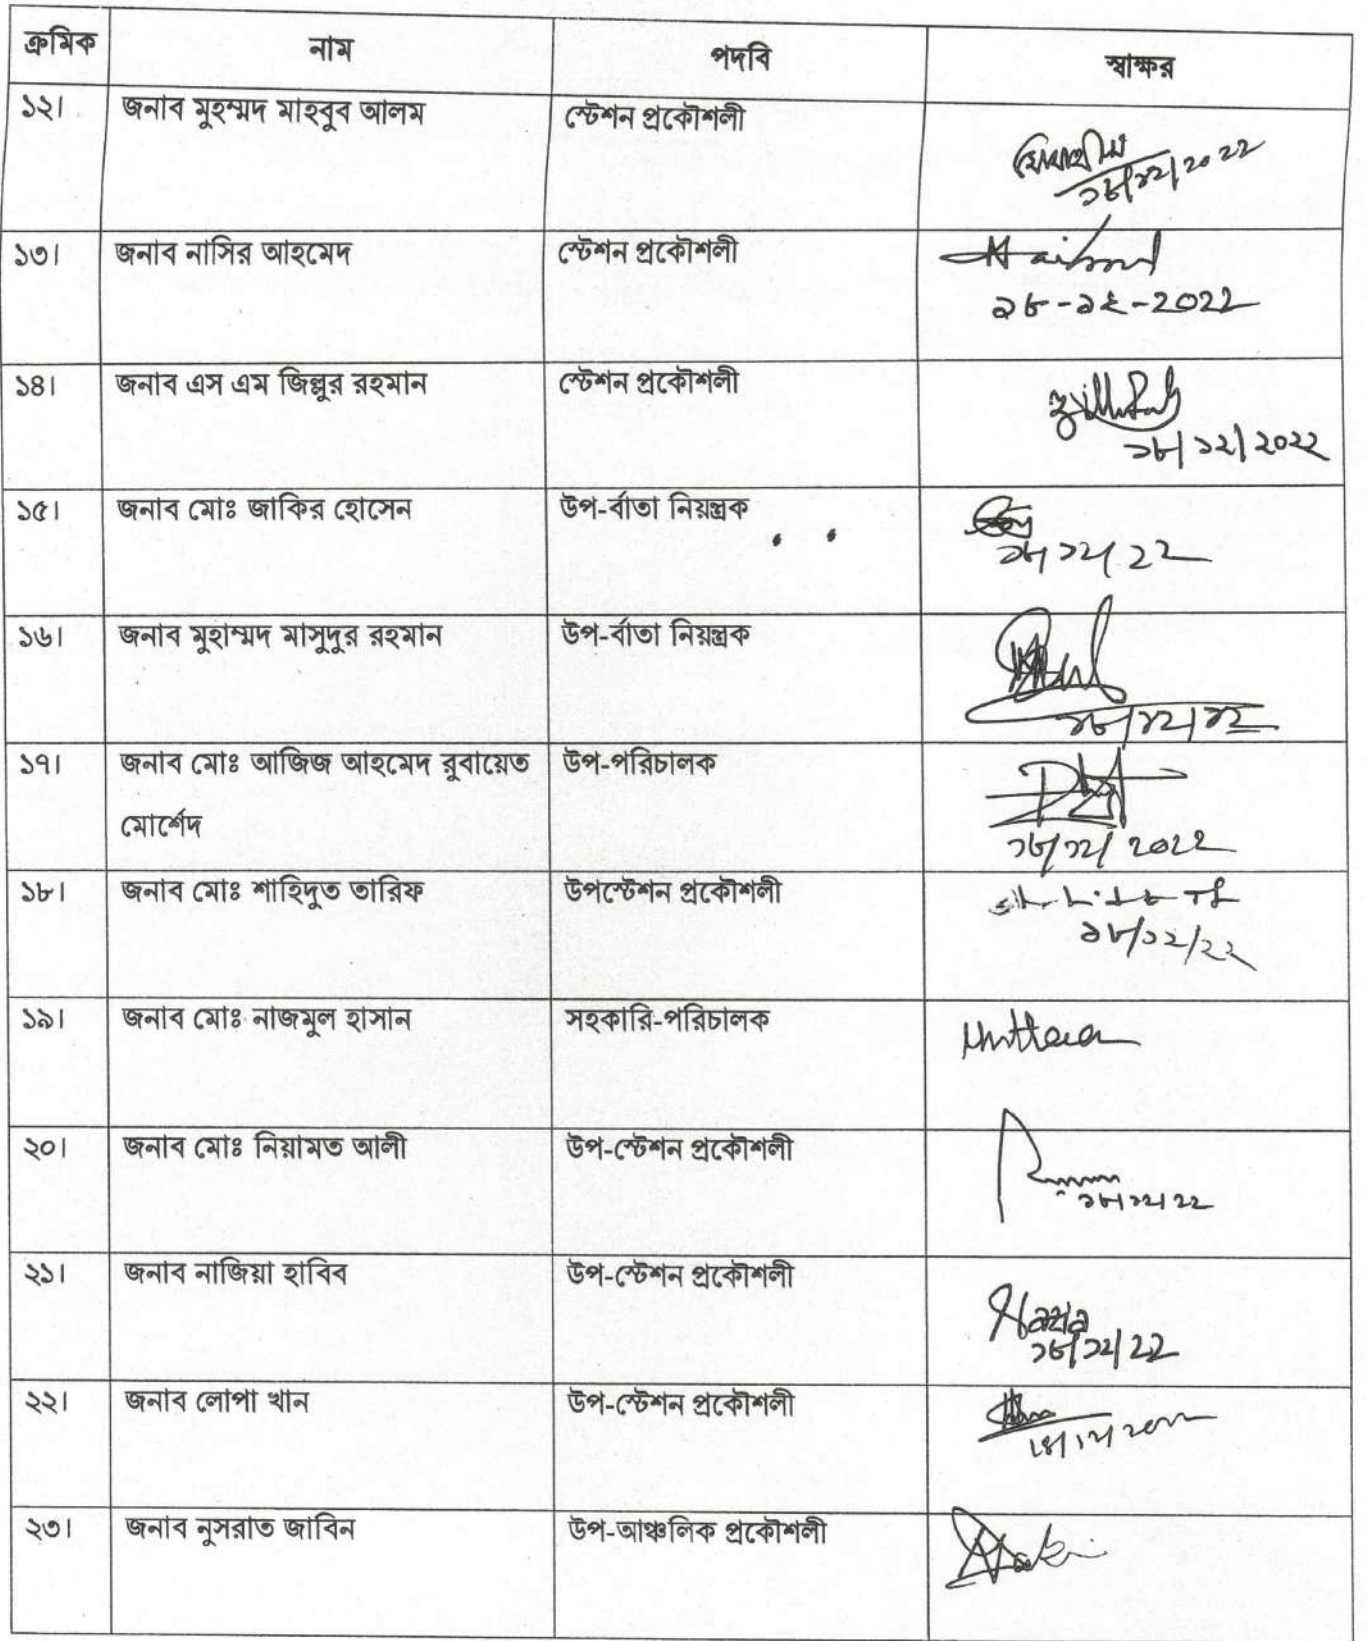 ক্রমিক নাম পদবি স্বাক্ষর
১২। জনাব মুহম্মদ মাহবুব আলম স্টেশন প্রকৌশলী
১৮/১২/২০২২
১৩। জনাব নাসির আহমেদ স্টেশন প্রকৌশলী
১৮-১২-২০২২
১৪। জনাব এস এম জিল্লুর রহমান স্টেশন প্রকৌশলী
১৮/১২/২০২২
১৫। জনাব মোঃ জাকির হোসেন উপ-র্বাতা নিয়ন্ত্রক
১৮/১২/২২
১৬। জনাব মুহাম্মদ মাসুদুর রহমান উপ-র্বাতা নিয়ন্ত্রক
১৮/১২/২২
১৭। জনাব মোঃ আজিজ আহমেদ রুবায়েত উপ-পরিচালক
মোর্শেদ
১৮/১২/২০২২
১৮। জনাব মোঃ শাহিদুত তারিফ উপস্টেশন প্রকৌশলী
১৮/১২/২২
১৯। জনাব মোঃ নাজমুল হাসান সহকারি-পরিচালক
২০। জনাব মোঃ নিয়ামত আলী উপ-স্টেশন প্রকৌশলী
১৮/১২/২২
২১। জনাব নাজিয়া হাবিব উপ-স্টেশন প্রকৌশলী
Nazia
১৮/১২/২২
২২। জনাব লোপা খান উপ-স্টেশন প্রকৌশলী
২৩। জনাব নুসরাত জাবিন উপ-আঞ্চলিক প্রকৌশলী